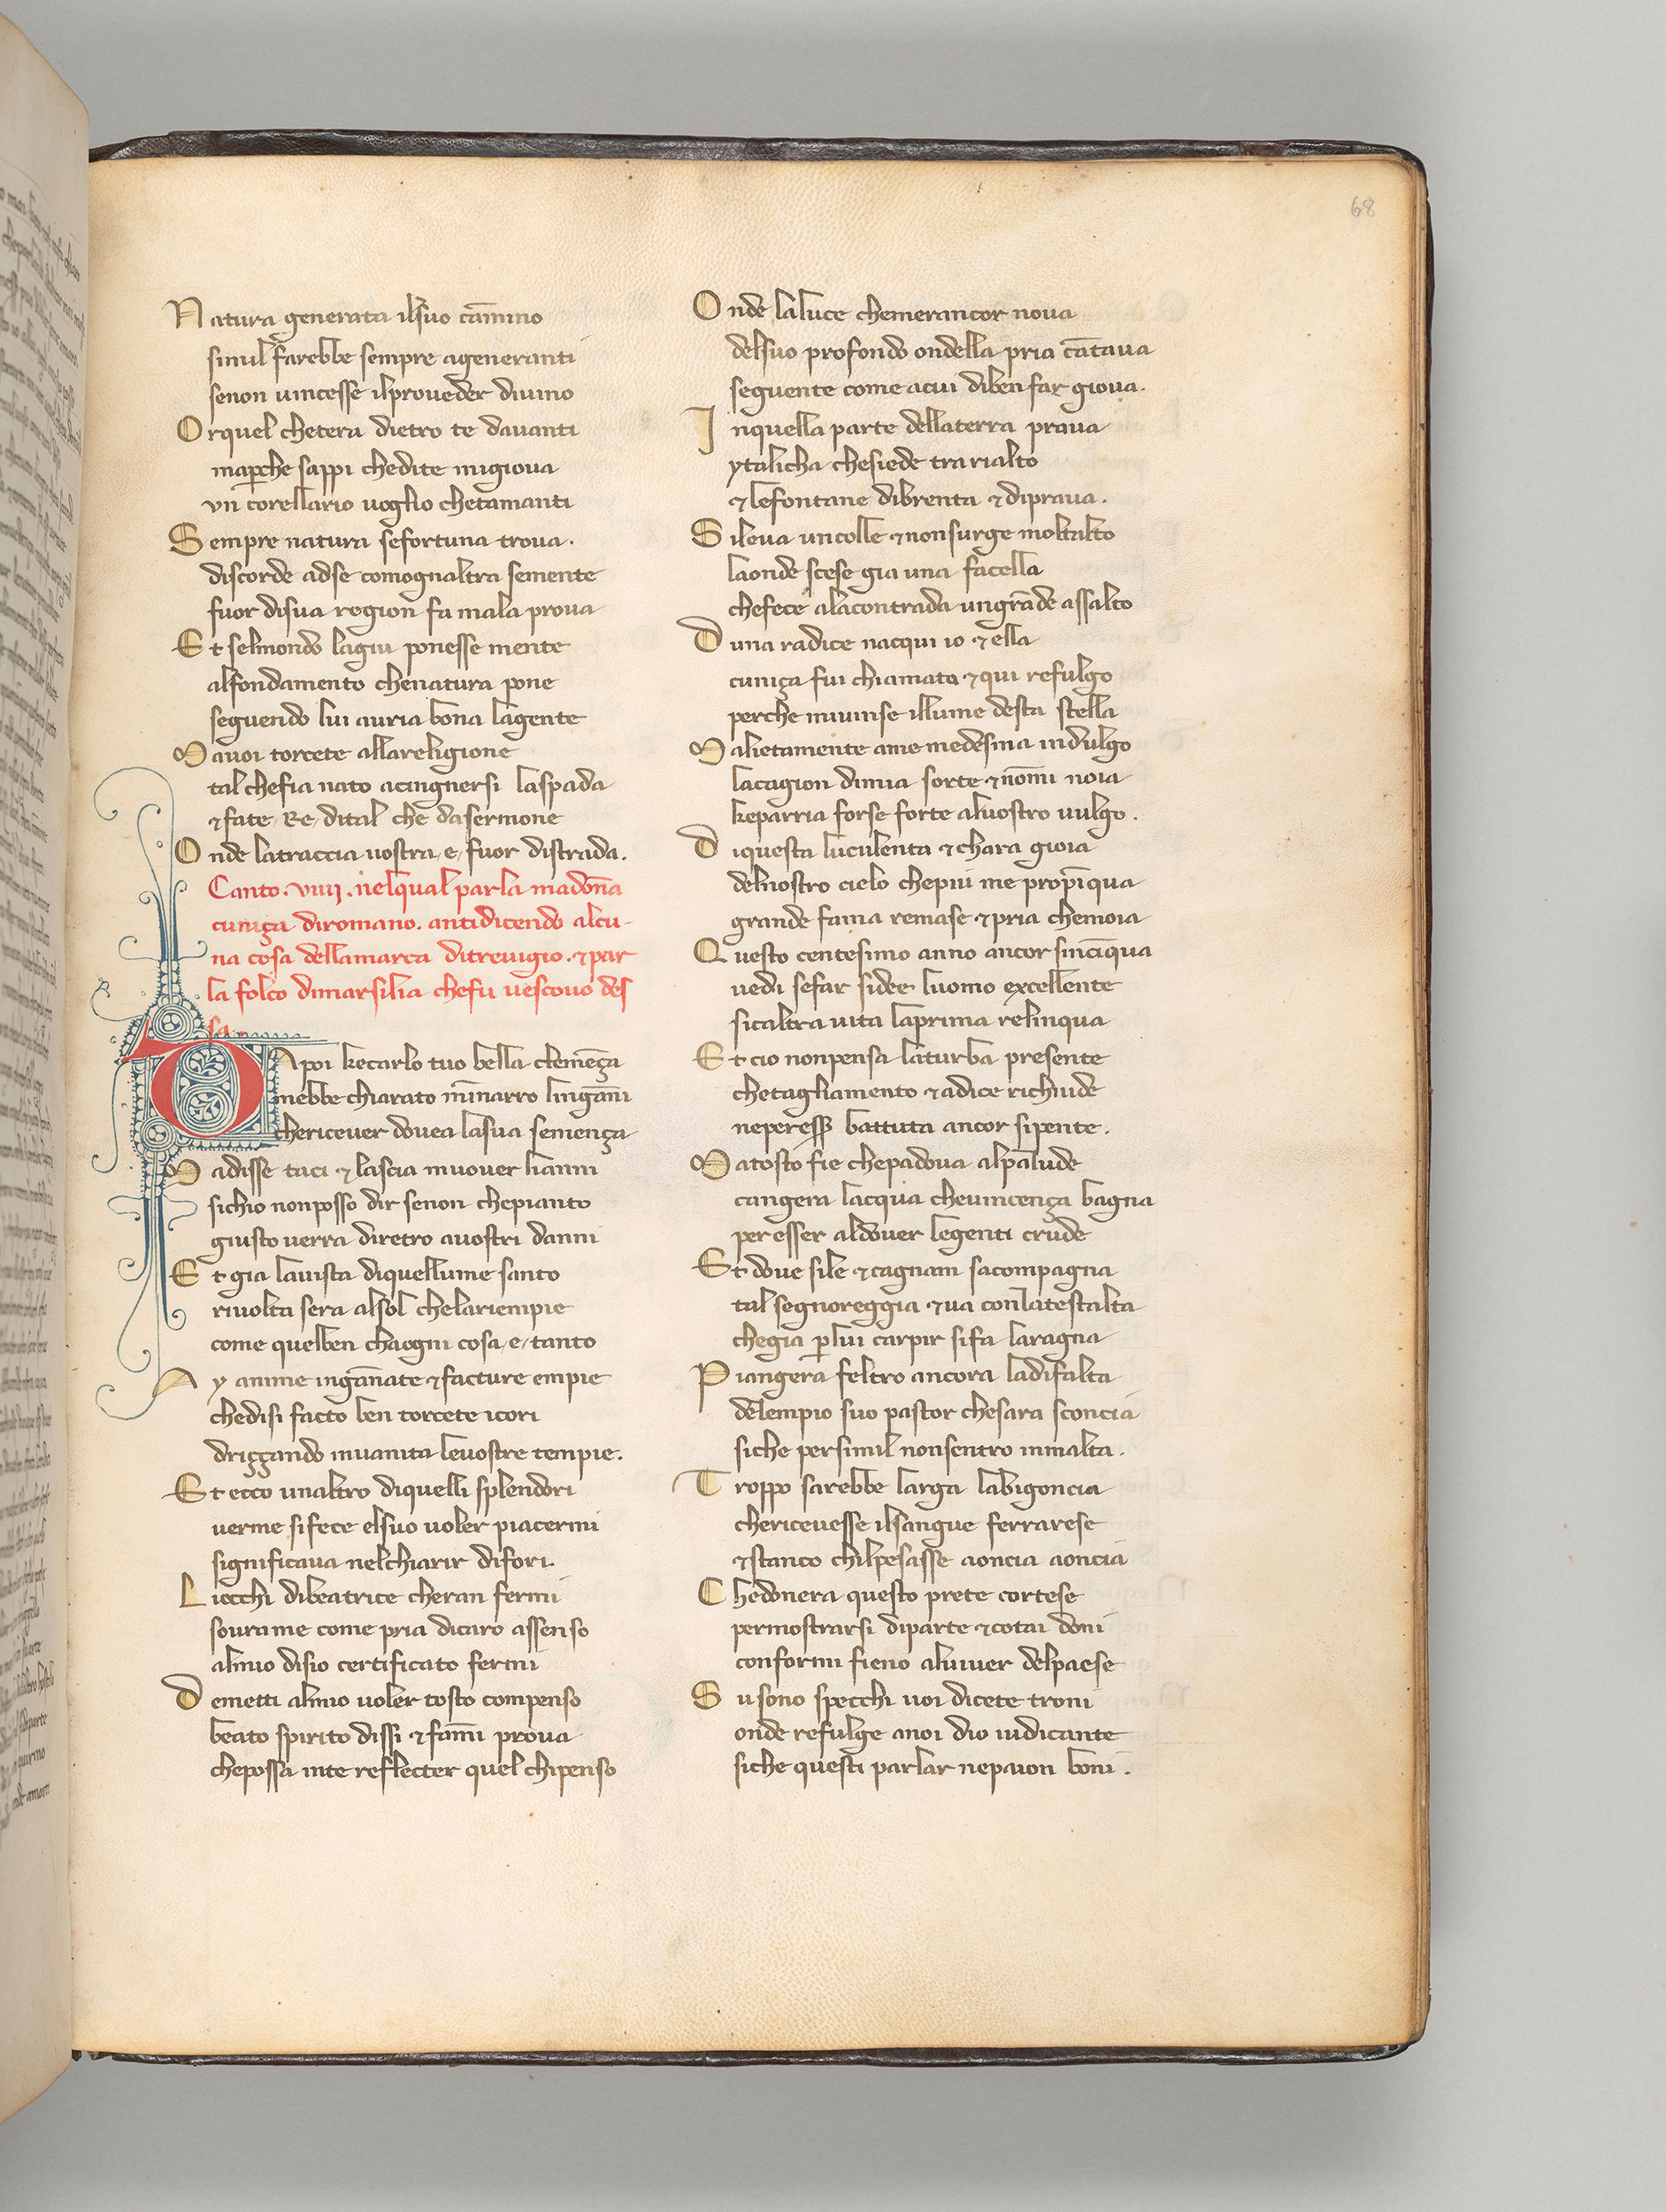 68
Natura generata ilsuo cam̄ino
simil farebbe sempre ageneranti
senon uincesse ilproueder diuino
Orquel chetera dietro te dauanti
map̱che sappi chedite migioua
vn corellario uoglio chetamanti
Sempre natura sefortuna troua.
discorde adse comognaltra semente
fuor disua region fa mala proua
Et selmondo lagiu ponesse mente
alfondamento chenatura pone
seguendo lui auria bona lagente
Mauoi torcete allareligione
tal chefia nato acingnersi laspada
⁊fate Re dital che dasermone
Onde latraccia uostra e fuor distrada.
Canto .viiij. nelqual parla madon̄a
cuniça diromano. antidicendo alcu-
na cosa dellamarca ditreuigio. ⁊ par
la folco dimarsilia chefu uescouo des
sa.
DApoi kecarlo tuo bella clemēça
mebbe chiarato mīnarro lingan̄i
chericeuer douea lasua semença
Madisse taci ⁊ lascia muouer lianni
sichio nonposso dir senon chepianto
giusto uerra diretro auostri danni
Et gia lauista diquellume santo
riuolta sera alsol chelariempie
come quelben chaogni cosa e tanto
Ay anime ingan̄ate ⁊ facture empie
chedisi facto ben torcete icori
driççando inuanita leuostre tempie.
Et ecco unaltro diquelli splendori
uerme sifece elsuo uoler piacermi
significaua nelchiarir difori.
Liocchi dibeatrice cheran fermi
sourame come pria dicaro assenso
almio disio certificato fermi
Demetti almio uoler tosto compenso
beato spirito dissi ⁊ fam̄i proua
chepossa inte reflecter quel chipenso
Onde laluce chemerancor noua
delsuo profondo ondella pria cātaua
seguente come acui diben far gioua.
Inquella parte dellaterra praua
ytalicha chesiede trarialto
⁊ lefontane dibrenta ⁊ dipraua.
Sileua uncolle ⁊ nonsurge moltalto
laonde scese gia una facella
chefece alacontrada ungrāde assalto
Duna radice nacqui io ⁊ ella
cuniça fui chiamata ⁊ qui refulgo
perche miuinse illume desta stella
Malietamente ame medesma indulgo
lacagion dimia sorte ⁊ nōmi noia
keparria forse forte aluostro uulgo.
Diquesta luculenta ⁊ chara gioia
delnostro cielo chepiu me propīqua
grande fama remase ⁊ pria chemoia
Questo centesimo anno ancor sincīqua
uedi sefar sidee luomo excellente
sicaltra uita laprima relinqua
Et cio nonpensa laturba presente
chetagliamento ⁊ adice richiude
neperesser battuta ancor sipente.
Matosto fie chepadoua alpalude
cangera lacqua cheuincença bagna
per esser aldouer legenti crude
Et doue sile ⁊ cagnam sacompagna
tal segnoreggia ⁊ ua conlatestalta
chegia p̱lui carpir sifa laragna
Piangera feltro ancora ladifalta
delempio suo pastor chesara sconcia
siche persimil nonsentro inmalta.
Troppo sarebbe larga labigoncia
chericeuesse ilsangue ferrarese
⁊stanco chilpesasse aoncia aoncia
Chedonera questo prete cortese
permostrarsi diparte ⁊ cotai doni
conformi fieno aluiuer delpaese
Susono specchi uoi dicete troni
onde refulge anoi dio iudicante
siche questi parlar nepaion boni.